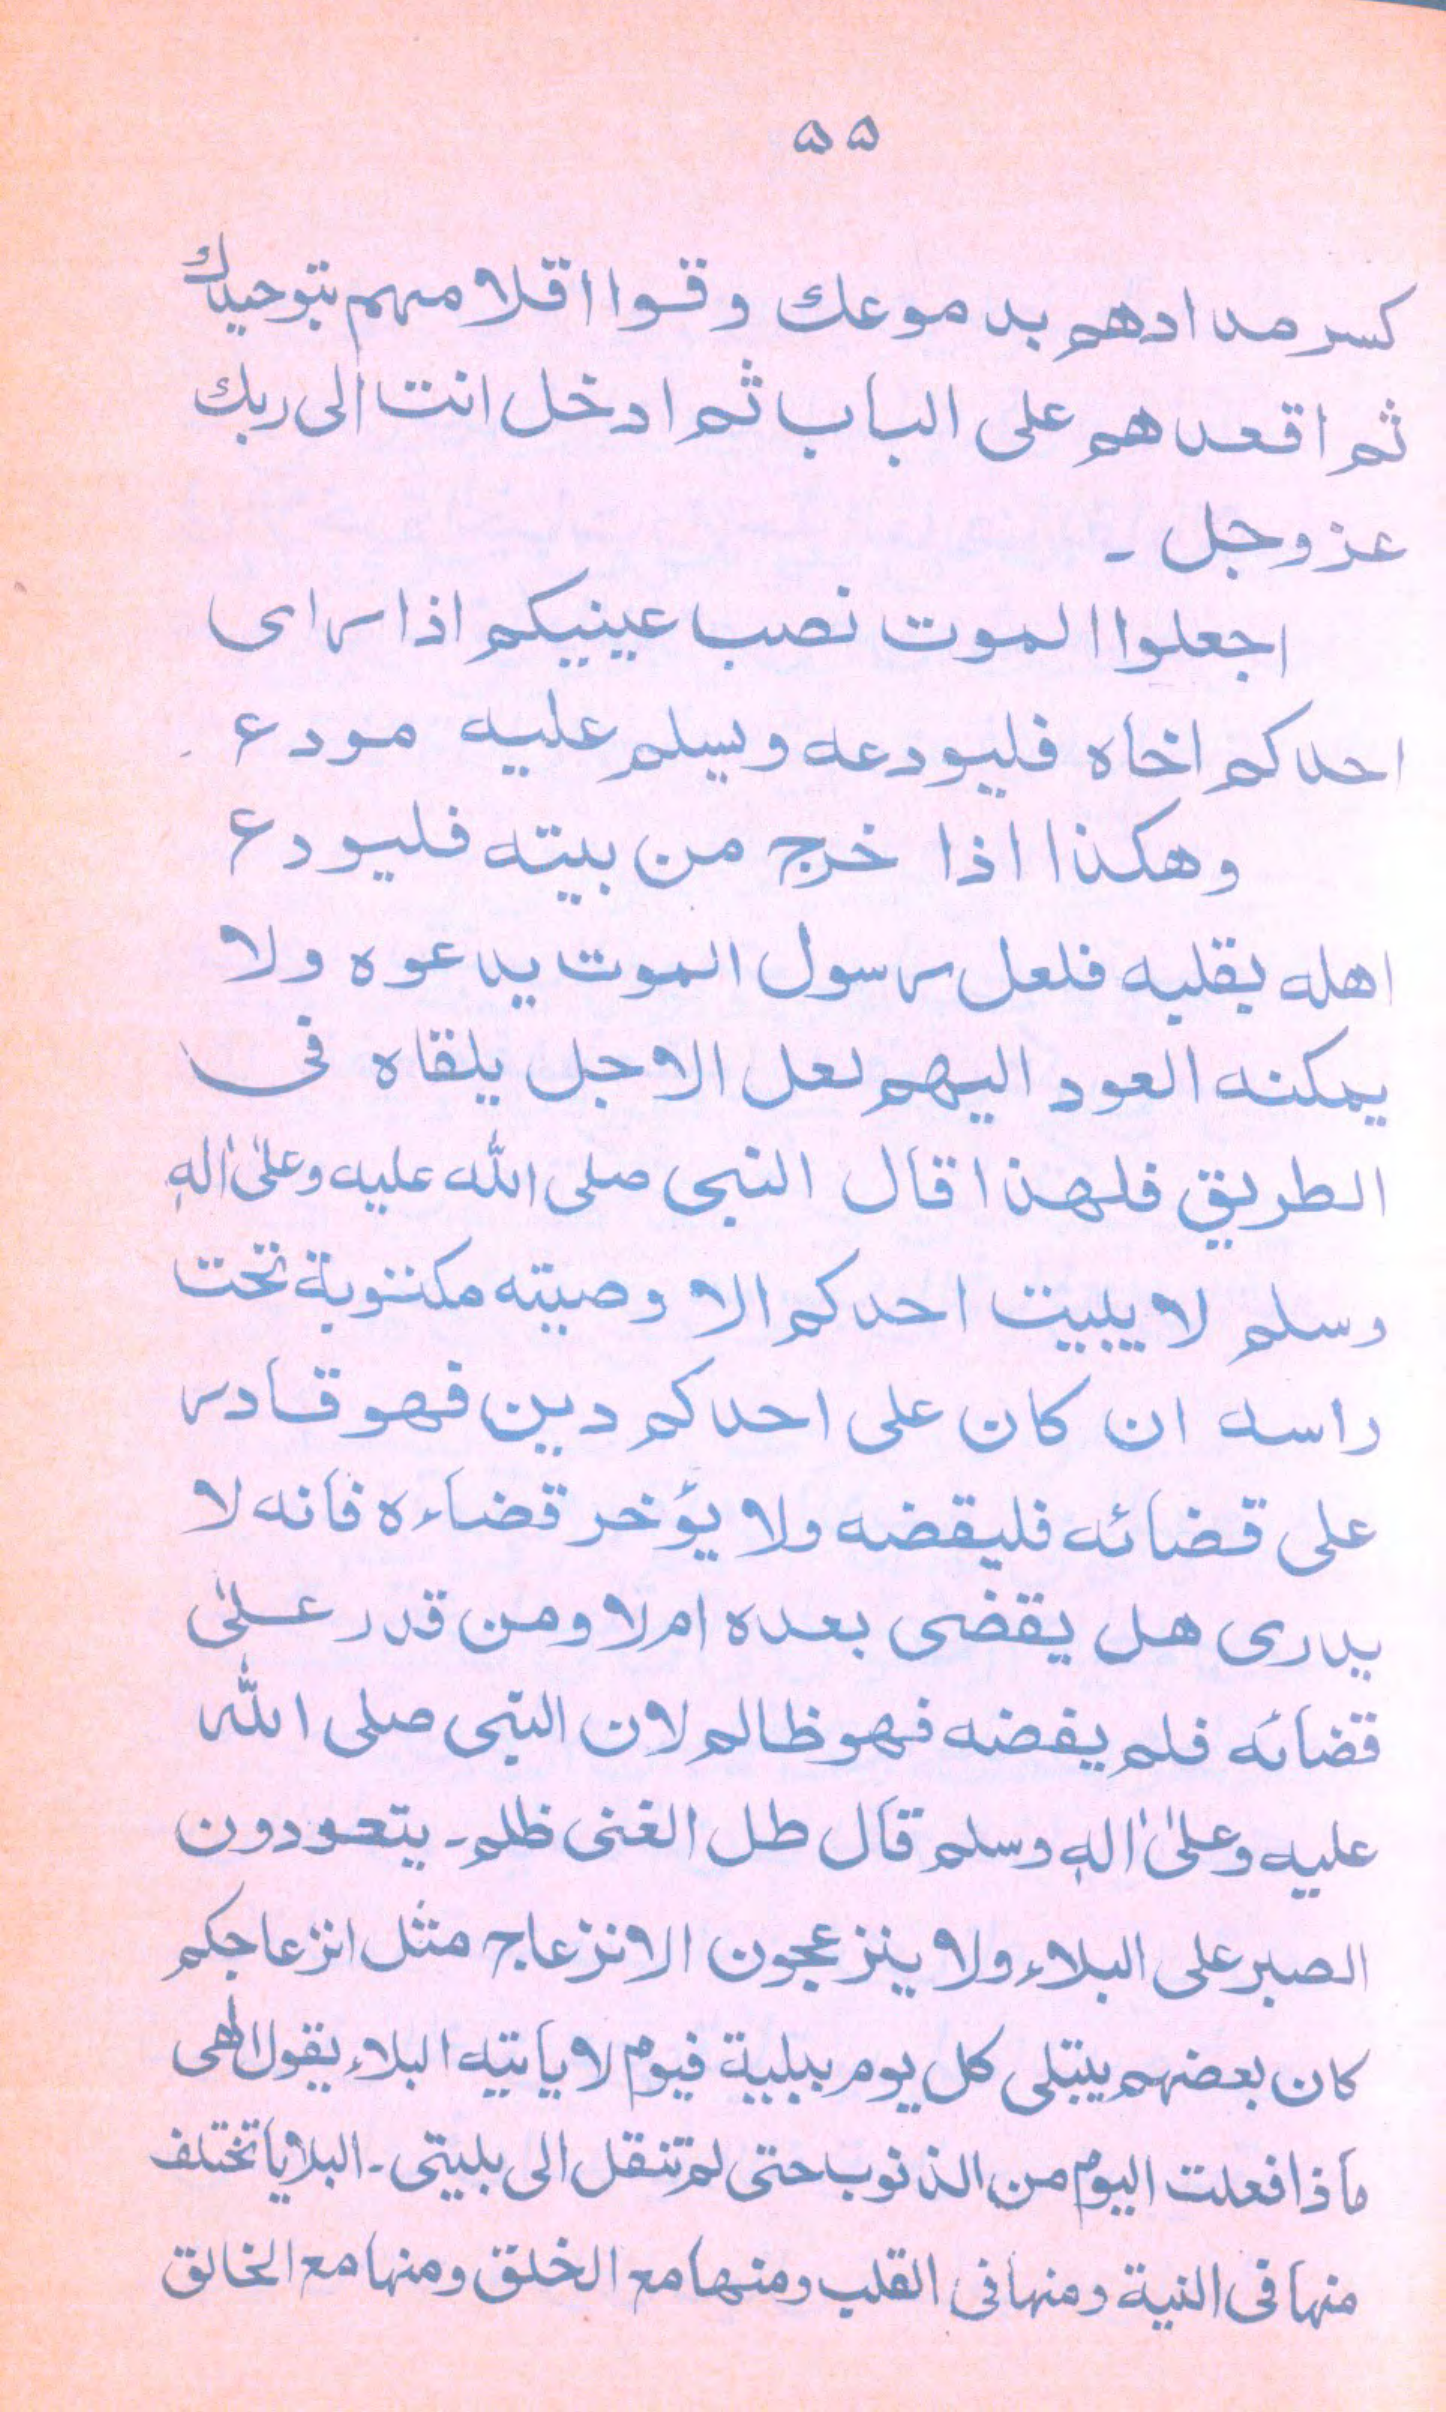 ۵۵
كسر مدادهم بدموعك وقوا اقلامهم بتوحيدك
ثم اقعدهم على الباب ثم ادخل انت الى ربك
عز وجل ـ
اجعلوا الموت نصب عينيكم اذا راى
احدكم اخاه فليودعه ويسلم عليه مودع
وهكذا اذا خرج من بيته فليودع
اهله بقلبه فلعل رسول الموت يدعوه ولا
يمكنه العود اليهم لعل الاجل يلقاه فى
الطريق فلهذا قال النبى صلى الله عليه وعلىٰ اٰلهٖ
وسلم لا يبيت احدكم الا وصيته مكتوبة تحت
راسه ان كان على احدكم دين فهو قادر
على قضائه فليقضه ولا يؤخر قضاءه فانه لا
يدرى هل يقضى بعده ام لا ومن قدر علىٰ
قضائه فلم يفضه فهو ظالم لان النبى صلى الله
عليه وعلىٰ اٰلهٖ وسلم قال طل الغنى ظلم ـ يتعودون
الصبر على البلاء ولا ينزعجون الانزعاج مثل انزعاجكم
كان بعضهم يبتلى كل يوم ببلية فيوم لا ياتيه البلاء يقول الٰهى
ماذا فعلت اليوم من الذنوب حتى لم تنقل الى بليتى ـ البلايا تختلف
منها فى النية ومنها فى القلب ومنها مع الخلق ومنها مع الخالق